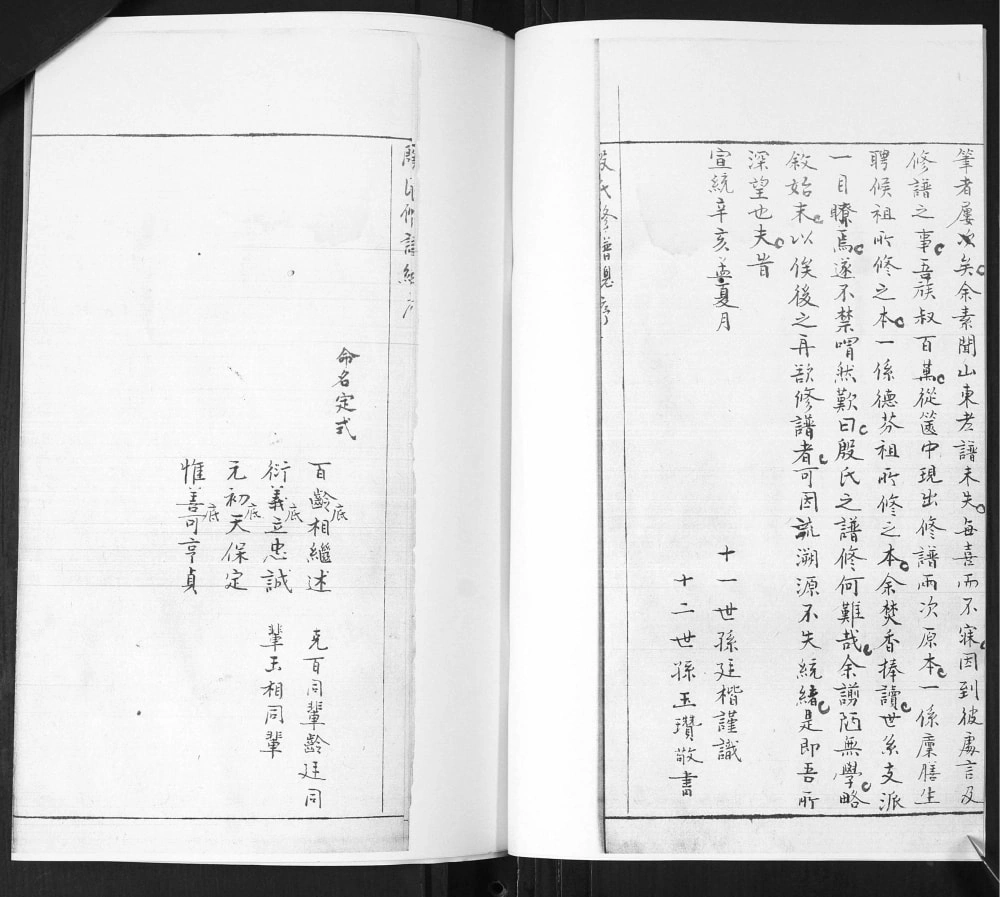 筆者屢次矣余素聞山東老譜未失每喜而不寐因到彼處言及
修譜之事吾族叔百萬從篋中現出修譜兩次原本一係廩膳生
聘候祖所修之本一係德芬祖所修之本余焚香捧讀世系支派
一目瞭焉遂不禁喟然歎曰殷氏之譜修何難哉余謭陋無學略
敘始末以俟後之再欲修譜者可因流溯源不失統緒是即吾所
深望也夫旹
宣統辛亥孟夏月
十一世孫廷楷謹識
十二世孫玉瓚敬書
殷氏修普思序
命名定式
百齡相繼述 克百同輩齡廷同
底
衍義立忠誠 輩玉相同輩
底
元初天保定
底
惟善可亨貞
底